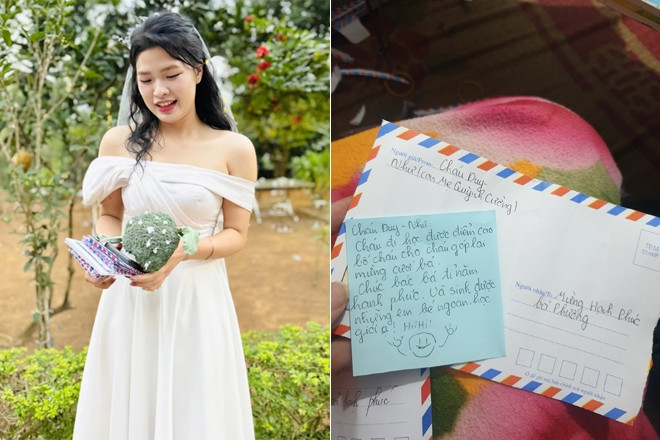 Người gửi/From: Cháu Duy-
Như! (con Mẹ Quỳnh Cường)
TEM
Cháu Duy - Như
Cháu đi học được điểm cao
bố cháu cho cháu góp lại
mừng cưới bá
Chúc bác bá tỉ năm
hạnh phúc. Và sinh được
những em bé ngoan học
giỏi ạ! Hi!Hi!
Người nhận/To: Mừng Hạnh Phúc
bá Phường
hạnh phúc